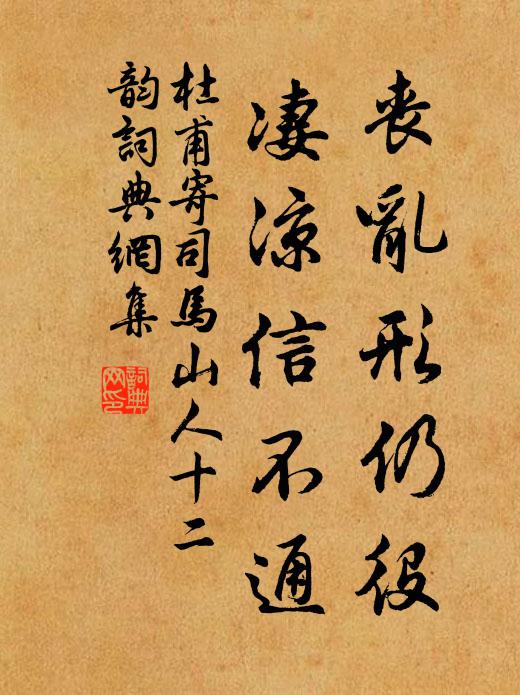 喪亂形仍役
凄涼信不通
杜甫寄司馬山人十二
韵詞典網集
詞典
网印